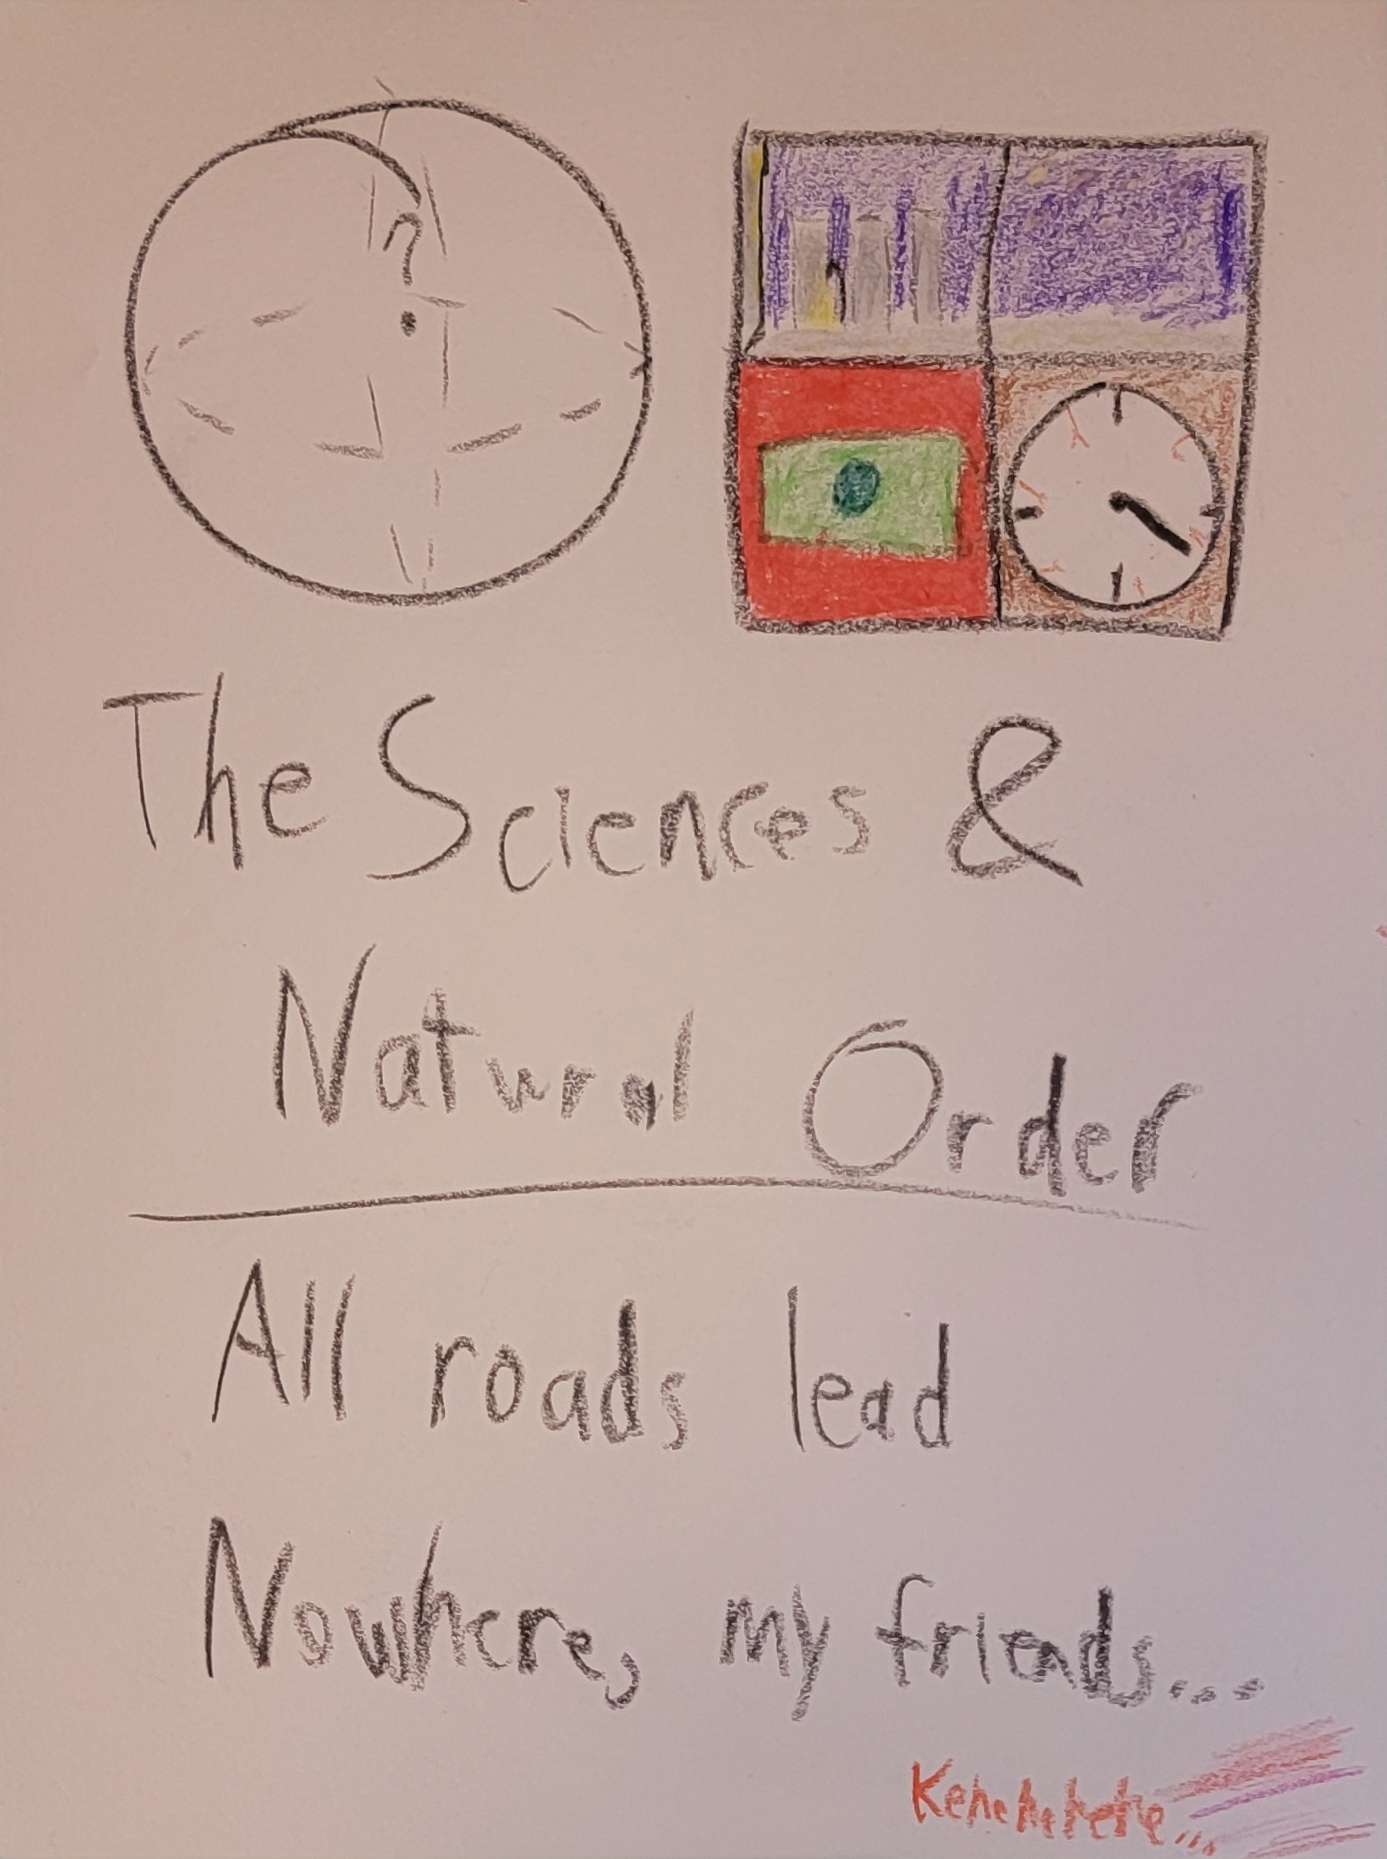 ?
The Sciences &
Natural Order
All roads lead
Nowhere, my friends...
Kehehehehe...